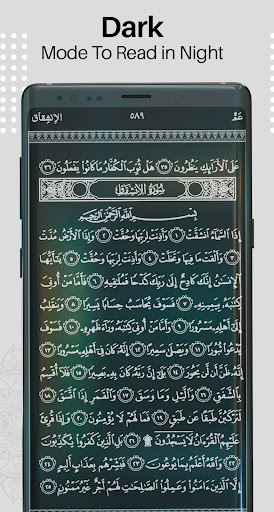 Dark
Mode To Read in Night
الإنشقاق ٥٨٩ عَمَّ
عَلَى ٱلْأَرَآئِكِ يَنظُرُونَ ٣٥ هَلْ ثُوِّبَ ٱلْكُفَّارُ مَا كَانُوا۟ يَفْعَلُونَ ٣٦
سُورَةُ الانشِقَاقِ
بِسْمِ ٱللَّهِ ٱلرَّحْمَٰنِ ٱلرَّحِيمِ
إِذَا ٱلسَّمَآءُ ٱنشَقَّتْ ١ وَأَذِنَتْ لِرَبِّهَا وَحُقَّتْ ٢ وَإِذَا ٱلْأَرْضُ مُدَّتْ
٣ وَأَلْقَتْ مَا فِيهَا وَتَخَلَّتْ ٤ وَأَذِنَتْ لِرَبِّهَا وَحُقَّتْ ٥ يَٰٓأَيُّهَا
ٱلْإِنسَٰنُ إِنَّكَ كَادِحٌ إِلَىٰ رَبِّكَ كَدْحًا فَمُلَٰقِيهِ ٦ فَأَمَّا مَنْ أُوتِىَ
كِتَٰبَهُۥ بِيَمِينِهِۦ ٧ فَسَوْفَ يُحَاسَبُ حِسَابًا يَسِيرًا ٨ وَيَنقَلِبُ
إِلَىٰٓ أَهْلِهِۦ مَسْرُورًا ٩ وَأَمَّا مَنْ أُوتِىَ كِتَٰبَهُۥ وَرَآءَ ظَهْرِهِۦ ١٠ فَسَوْفَ
يَدْعُوا۟ ثُبُورًا ١١ وَيَصْلَىٰ سَعِيرًا ١٢ إِنَّهُۥ كَانَ فِىٓ أَهْلِهِۦ مَسْرُورًا ١٣
إِنَّهُۥ ظَنَّ أَن لَّن يَحُورَ ١٤ بَلَىٰٓ إِنَّ رَبَّهُۥ كَانَ بِهِۦ بَصِيرًا ١٥ فَلَآ أُقْسِمُ
بِٱلشَّفَقِ ١٦ وَٱلَّيْلِ وَمَا وَسَقَ ١٧ وَٱلْقَمَرِ إِذَا ٱتَّسَقَ ١٨
لَتَرْكَبُنَّ طَبَقًا عَن طَبَقٍ ١٩ فَمَا لَهُمْ لَا يُؤْمِنُونَ ٢٠ وَإِذَا قُرِئَ
عَلَيْهِمُ ٱلْقُرْءَانُ لَا يَسْجُدُونَ ۩ ٢١ بَلِ ٱلَّذِينَ كَفَرُوا۟ يُكَذِّبُونَ
٢٢ وَٱللَّهُ أَعْلَمُ بِمَا يُوعُونَ ٢٣ فَبَشِّرْهُم بِعَذَابٍ أَلِيمٍ
٢٤ إِلَّا ٱلَّذِينَ ءَامَنُوا۟ وَعَمِلُوا۟ ٱلصَّٰلِحَٰتِ لَهُمْ أَجْرٌ غَيْرُ مَمْنُونٍۭ ٢٥